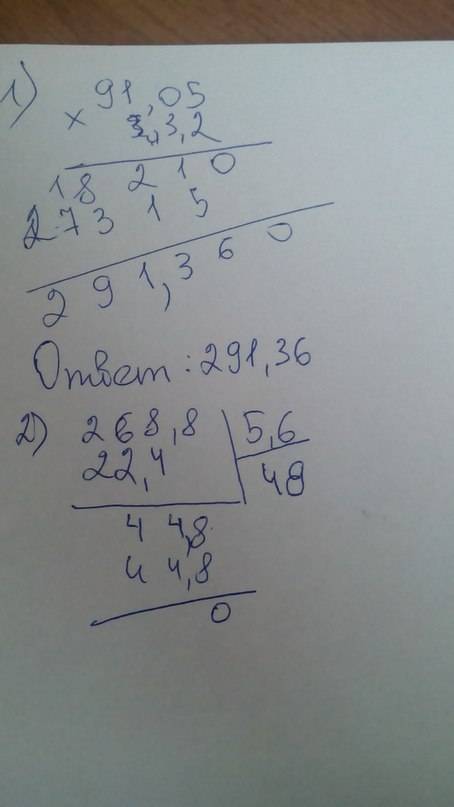 1)
91,05
× 3,2
18 2 1 0
273 1 5
2 9 1,3 6 0
Ответ: 291,36
2) 268,8 5,6
22,4 48
4 4,8
4 4,8
0